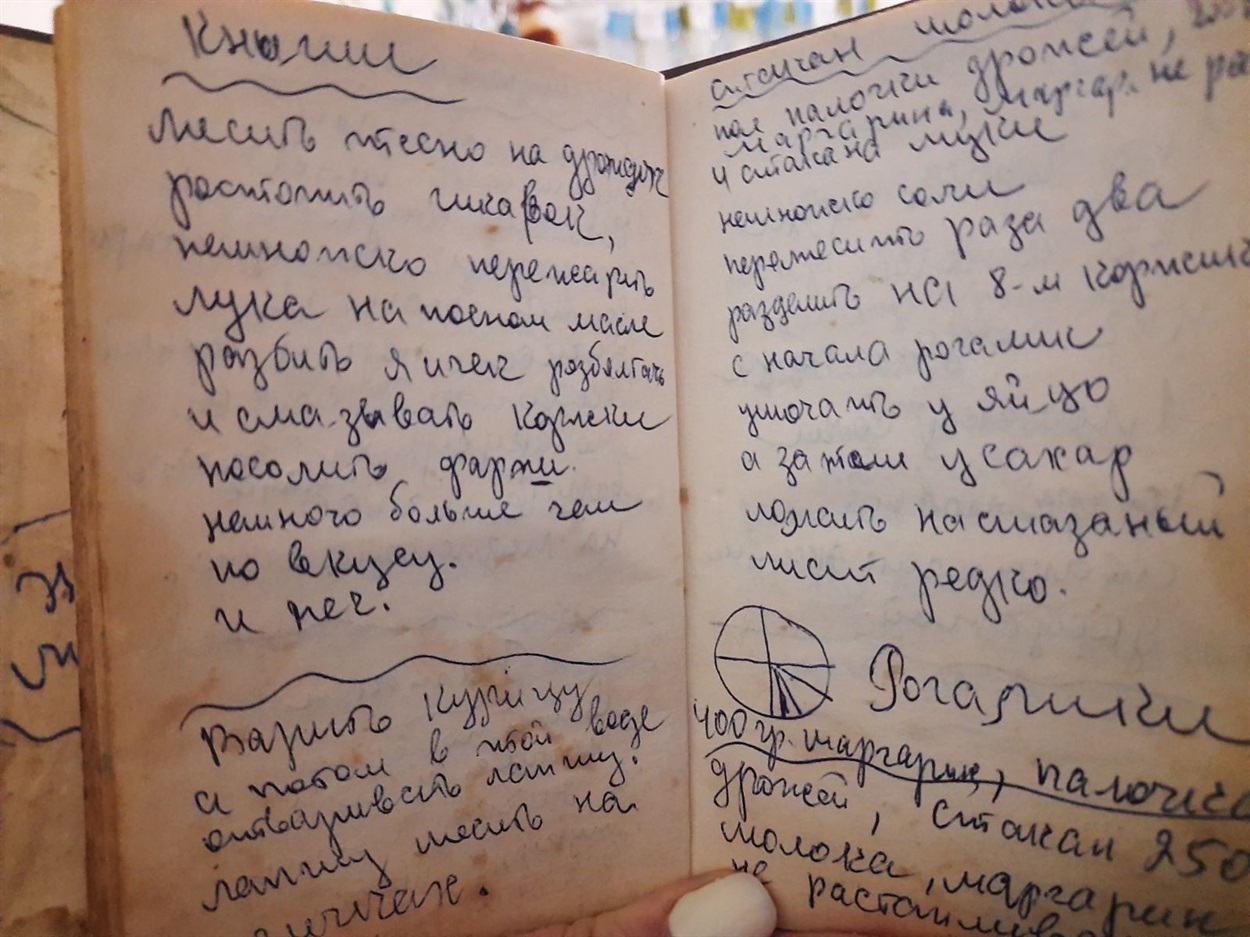 Кныши
месить тесно на дрождях
ростопить шкарок,
немножко пережарить
лука на посном масле
розбить яичек розбялтать
и смазывать коржик
посолить фаржи
немного больше чем
по вкусу.
и печ.
Варить курицу
а потом в этой воде
отваривать лапшу.
лапшу месить на
яичках.
стакан молока
пол палочки дрожей,
маргарина, маргар. не ра
4 стакана муки
немножко соли
перемесить раза два
разделить на 8-м коржиков
с начала рогалик
умочать у яйцо
а затем у сахар
ложить на смазаный
лист редко.
Рогалики
400 гр. маргарин, палочка
дрожей, стакан 250
молока, маргарин
не растапливать